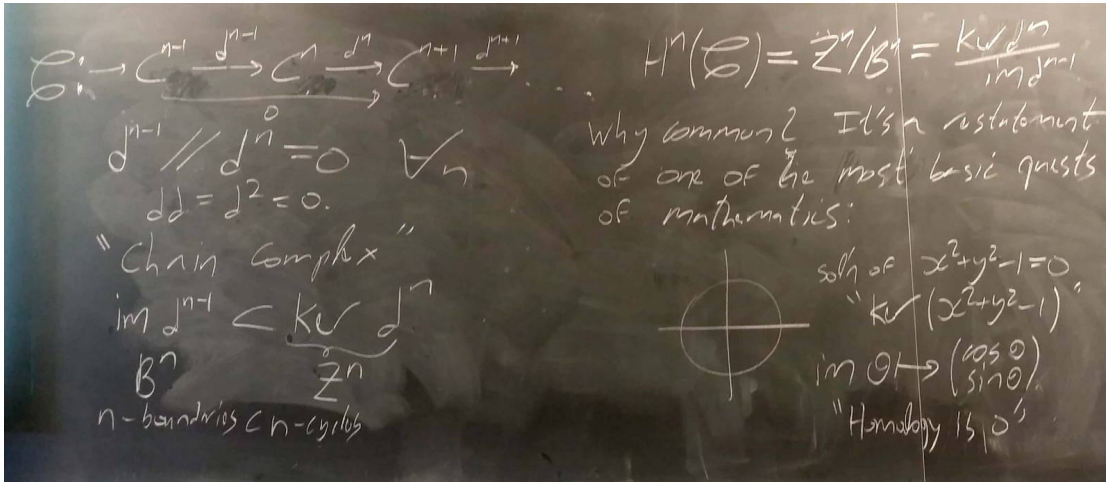 C: → Cⁿ⁻¹ –dⁿ⁻¹→ Cⁿ –dⁿ→ Cⁿ⁺¹ –dⁿ⁺¹→ ....
0
dⁿ⁻¹ // dⁿ = 0 ∀n
dd = d² = 0.
"Chain Complex"
im dⁿ⁻¹ ⊂ ker dⁿ
Bⁿ Zⁿ
n-boundries ⊂ n-cycles
Hⁿ(C) = Zⁿ/Bⁿ = ker dⁿ / im dⁿ⁻¹
Why common? It's a restatement
of one of the most basic quests
of mathematics:
soln of x²+y²-1=0
"ker (x²+y²-1)"
im θ ↦ (cos θ
sin θ).
"Homology is 0"